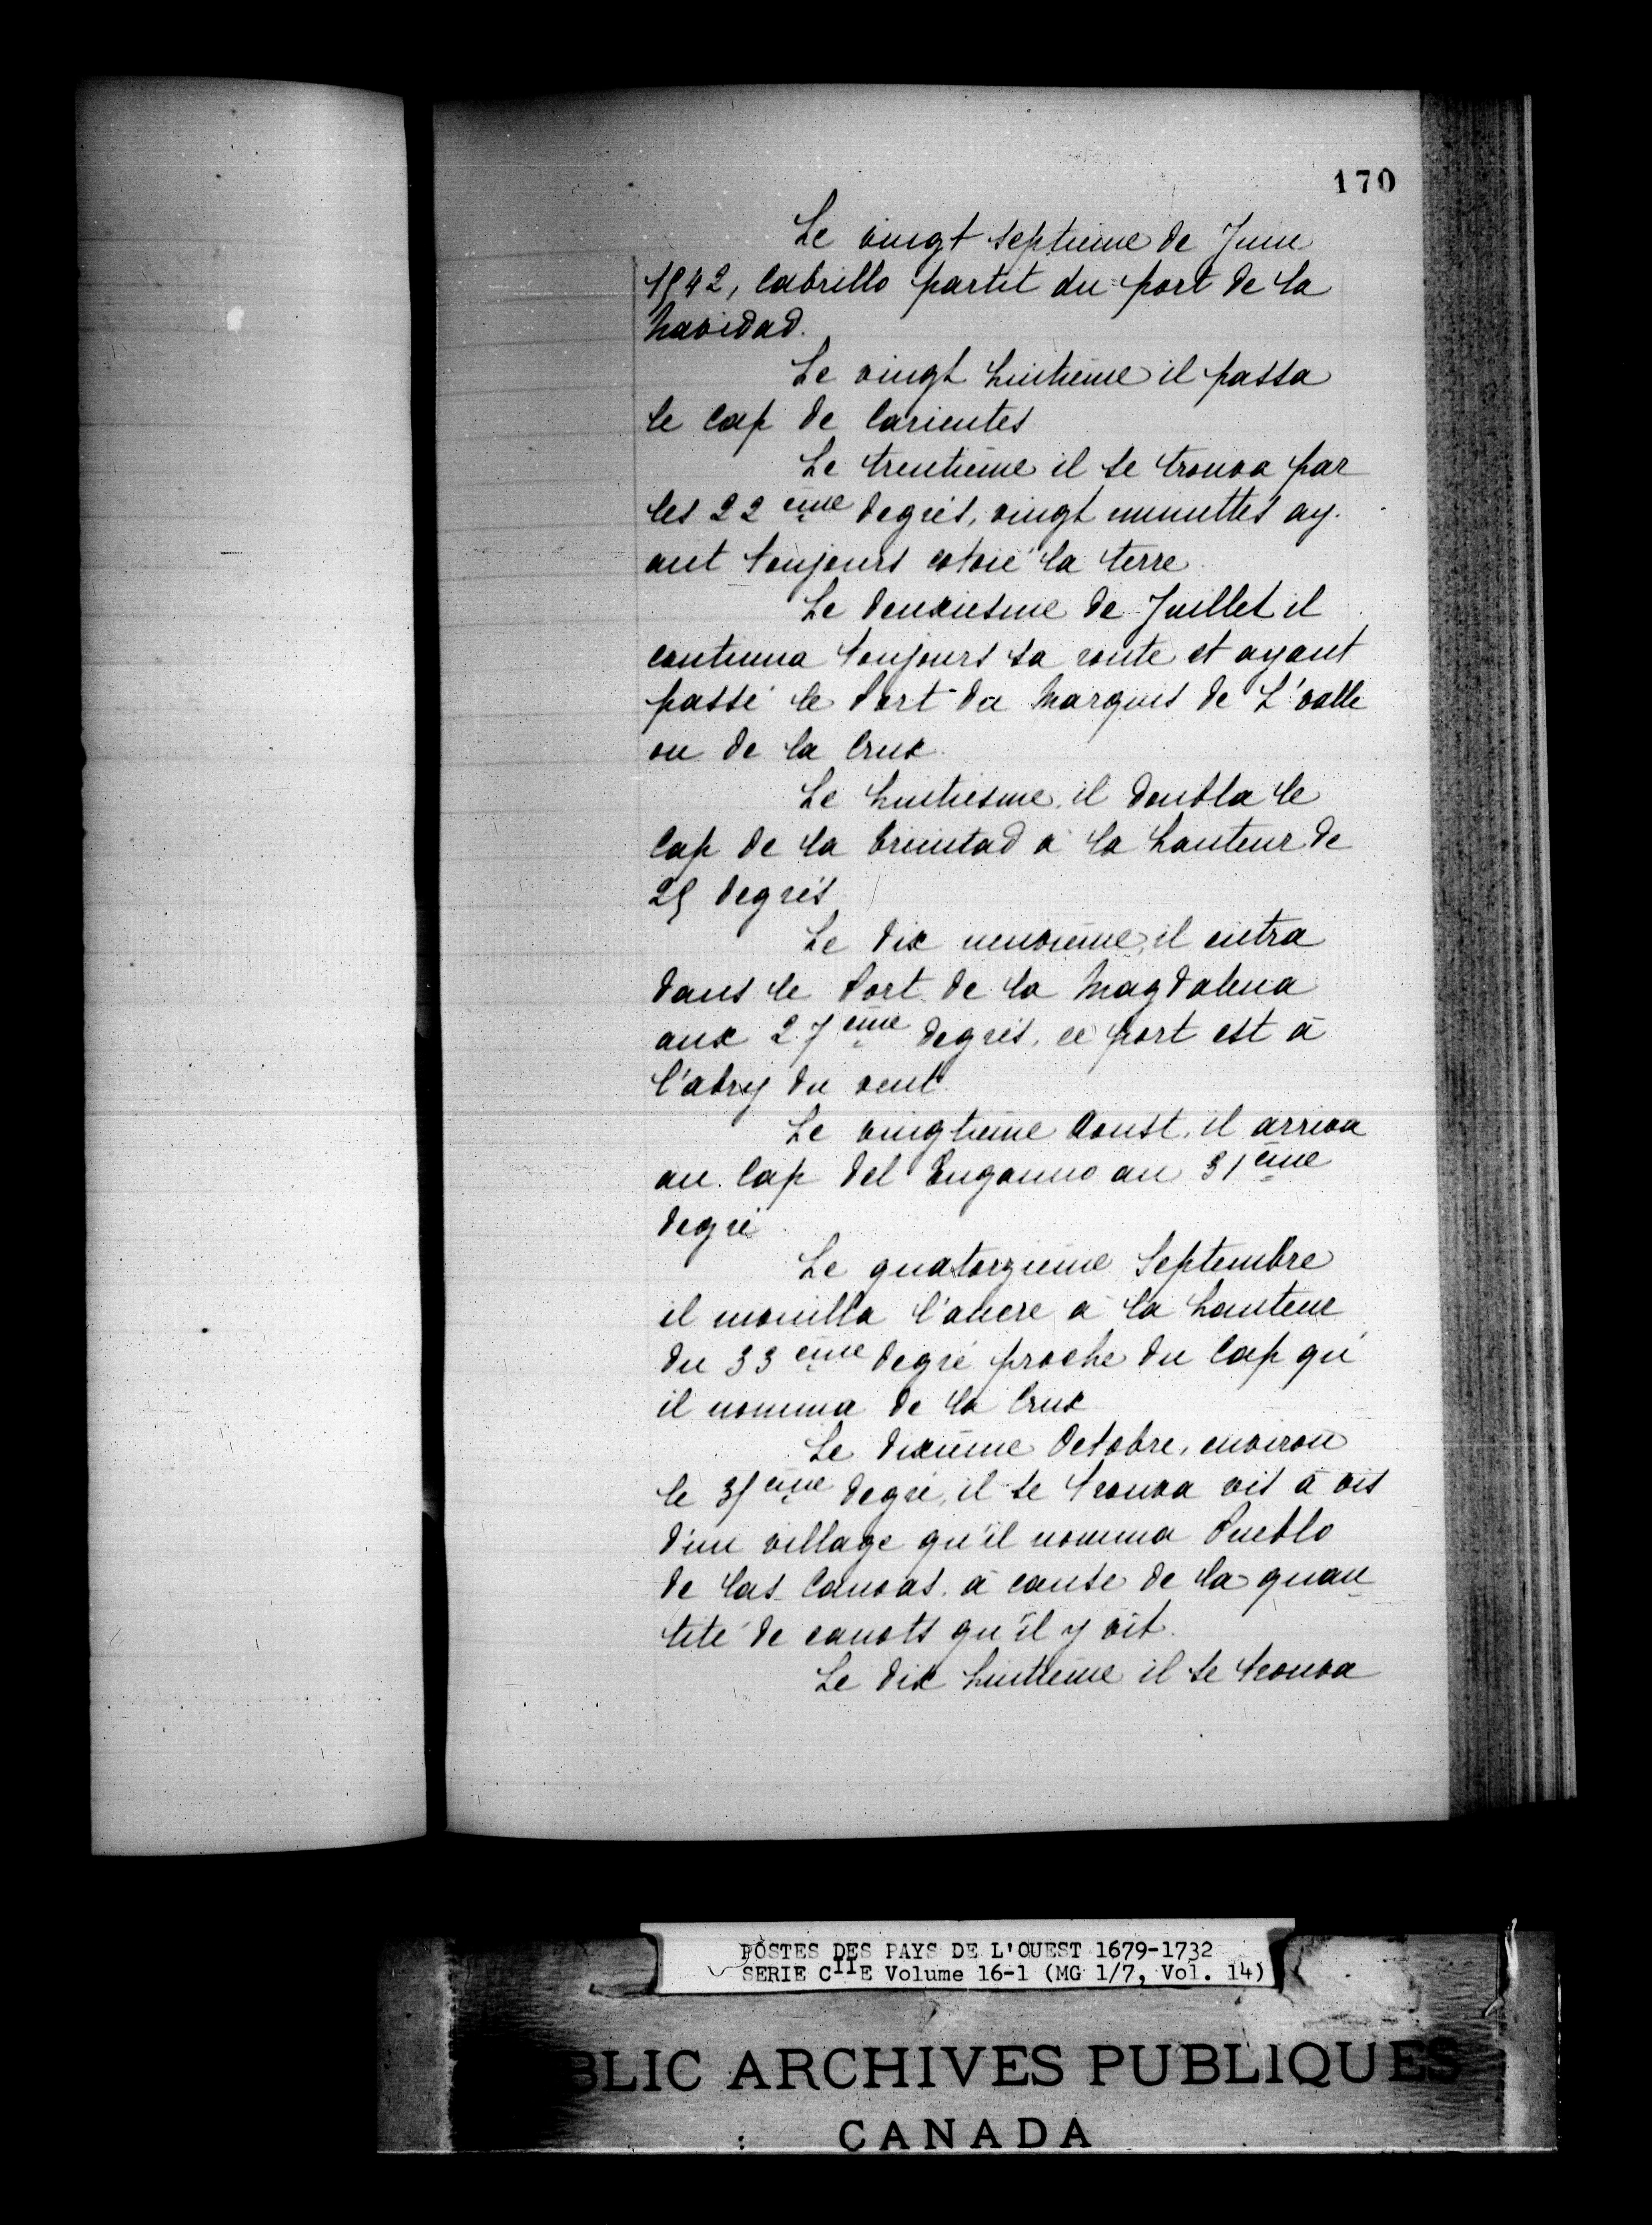 170
Le vingt septieme de Juin
1542, Cabrillo partit du port de la
Navidad.
Le vingt huitième il passa
le Cap de Carientes
Le trentième il se trouva par
les 22 ème degrés, vingt minuttes ay-
ant toujours cotoié la terre
Le deuxiesme de Juillet il
continua toujours sa route et ayant
passé le Port du Marquis de L'valle
ou de la Crux.
Le huitiesme, il doubla le
Cap de la Trinitad à la hauteur de
25 degrés
Le dix neuvième, il entra
dans le Port de la Magdalena
aux 27 ème degrés, ce port est à
l'abry du vent
Le vingtième Aoust, il arriva
au Cap del Enganno au 31 ème
degré
Le quatorzième Septembre
il mouilla l'ancre à la hauteur
du 33 ème degré proche du Cap qu'
il nomma de la Crux
Le dixième Octobre, environ
le 35 ème degré, il se trouva vis à vis
d'un village qu'il nomma Pueblo
de las Canoas, à cause de la quan-
tité de canots qu'il y vit.
Le dix huitième il se trouva
POSTES DES PAYS DE L'OUEST 1679-1732
SERIE CIIE Volume 16-1 (MG 1/7, Vol. 14)
BLIC ARCHIVES PUBLIQUES
CANADA